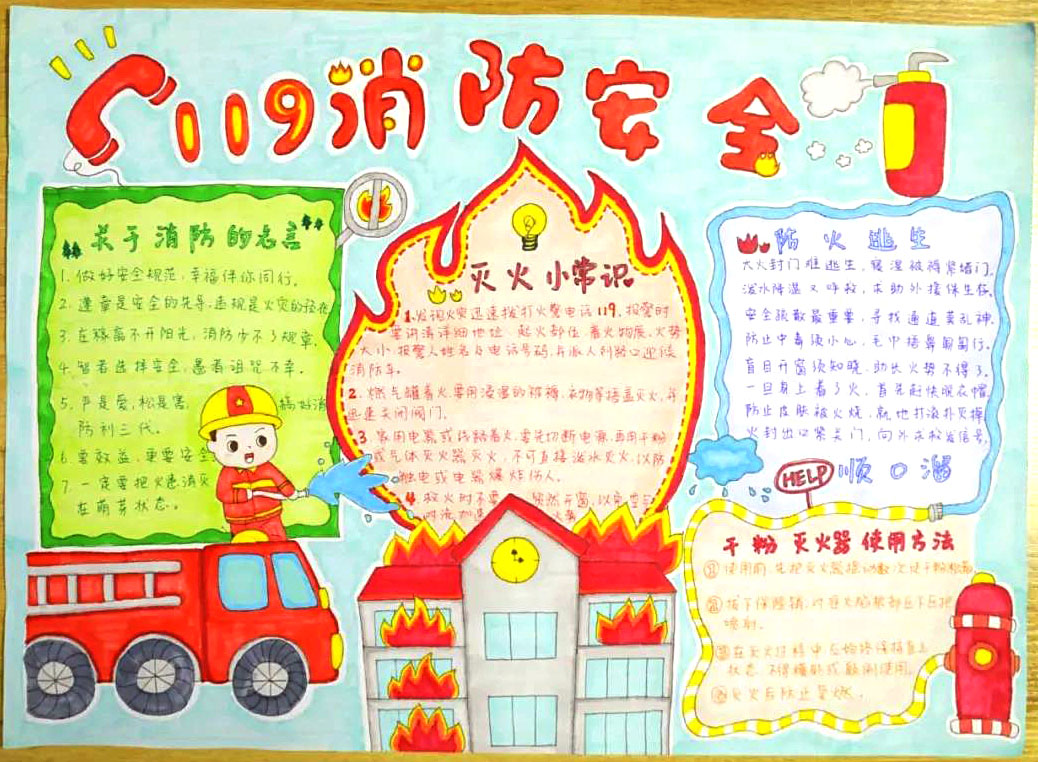 119消防安全
关于消防的名言
1. 做好安全规范，幸福伴你同行。
2. 遵章是安全的先导，违规是火灾的径夜
3. 庄稼离不开阳光，消防少不了规章。
4. 智者选择安全，愚者诅咒不幸。
5. 严是爱，松是害，搞好消
防利三代。
6. 要效益，更要安全
7. 一定要把火患消灭
在萌芽状态。
灭火小常识
1. 发现火灾迅速拨打火警电话119。报警时
要讲清详细地址、起火部位、着火物质、火势
大小、报警人姓名及电话号码，并派人到路口迎候
消防车。
2. 燃气罐着火，要用浸湿的被褥、衣物等捂盖灭火，并
迅速关闭阀门。
3. 家用电器或线路着火，要先切断电源，再用干粉
或气体灭火器灭火，不可直接泼水灭火，以防
触电或电器爆炸伤人。
4. 救火时不要贸然开窗，以免空
对流加速
防火逃生
大火封门难逃生，寝湿被褥紧堵门。
泼水降温又呼救，求助外援保生存。
安全疏散最重要，寻找通道莫乱神。
防止中毒须小心，毛巾捂鼻匍匐行。
盲目开窗须知晓，助长火势不得了。
一旦身上着了火，首先赶快脱衣帽，
防止皮肤被火烧，就地打滚扑灭掉。
火封出口紧关门，向外求救发信号。
HELP
顺口溜
干粉灭火器使用方法
①使用前，先把灭火器摇动数次使干粉松散
②拔下保险销，对准火焰根部压下压把
喷射。
③在灭火过程中应始终保持直立
状态，不得横卧或颠倒使用。
④灭火后防止复燃。